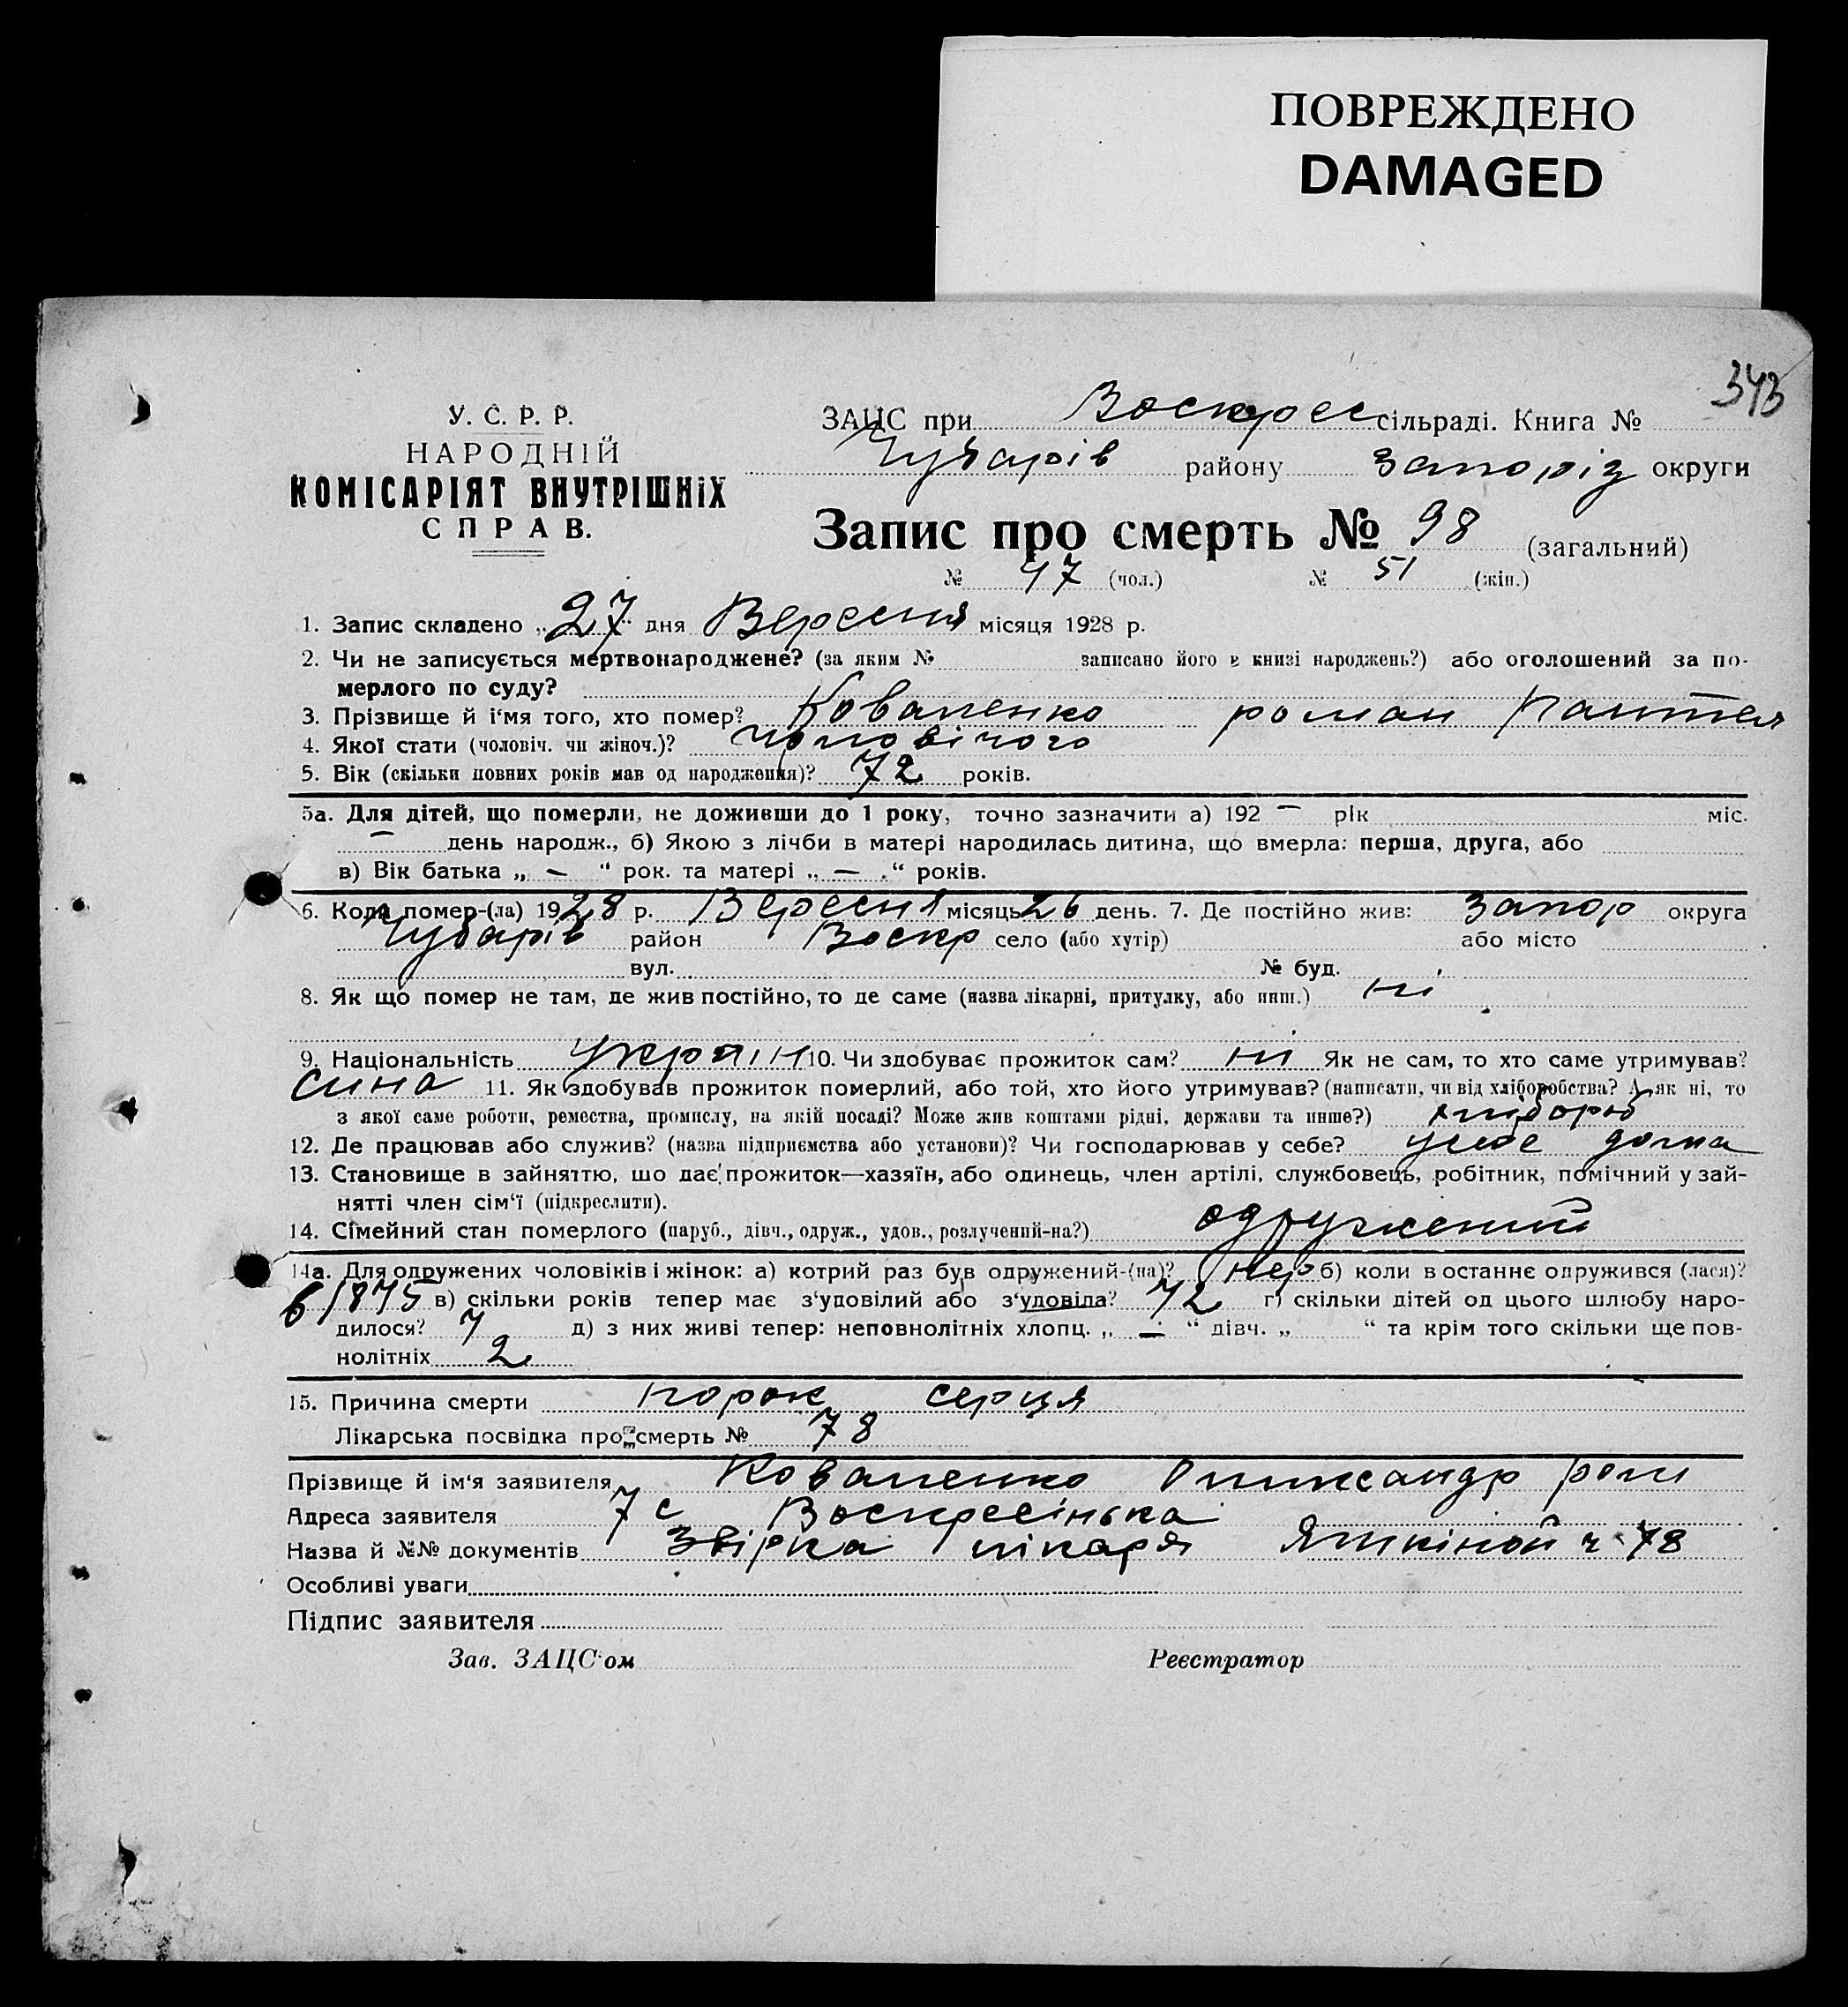 ПОВРЕЖДЕНО
DAMAGED
343
У. С. Р. Р.
НАРОДНІЙ
КОМІСАРІЯТ ВНУТРІШНІХ
СПРАВ.
ЗАЦС при Воскрес сільраді. Книга №
Чубарів району Запоріз округи
Запис про смерть № 98 (загальний)
№ 47 (чол.) № 51 (жін.)
1. Запис складено „27" дня Вересня місяця 1928 р.
2. Чи не записується мертвонароджене? (за яким № записано його в книзі народжень?) або оголошений за по-
мерлого по суду?
3. Прізвище й і'мя того, хто помер? Коваленко роман Пантел
4. Якої стати (чоловіч. чи жіноч.)? чоловічого
5. Вік (скільки повних років мав од народження)? 72 років.
5а. Для дітей, що померли, не доживши до 1 року, точно зазначити а) 192 — рік міс.
— день народж., б) Якою з лічби в матері народилась дитина, що вмерла: перша, друга, або
в) Вік батька „ — “ рок. та матері „ — .“ років.
6. Коли помер-(ла) 1928 р. Вересня місяць 26 день. 7. Де постійно жив: Запор округа
Чубарів район Воскр село (або хутір) або місто
вул. № буд.
8. Як що помер не там, де жив постійно, то де саме (назва лікарні, притулку, або инш.) ні
9. Національність Україн 10. Чи здобуває прожиток сам? ні Як не сам, то хто саме утримував?
сина 11. Як здобував прожиток померлий, або той, хто його утримував? (написати, чи від хліборобства? А як ні, то
з якої саме роботи, ремества, промислу, на якій посаді? Може жив коштами рідні, держави та инше?) хлібороб
12. Де працював або служив? (назва підприємства або установи)? Чи господарював у себе? дома
13. Становище в зайняттю, що дає прожиток—хазяїн, або одинець, член артілі, службовець, робітник, помічний у зай-
нятті член сім'ї (підкреслити).
14. Сімейний стан померлого (паруб., дівч., одруж., удов., розлучений-на?) одружений
14а. Для одружених чоловіків і жінок: а) котрий раз був одружений-(на)? пер б) коли в останнє одружився (лася)?
в 1875 в) скільки років тепер має з'удовілий або з'удовіла? 72 г) скільки дітей од цього шлюбу наро-
дилося? 7 д) з них живі тепер: неповнолітніх хлопц. „ — “ дівч. „ “ та крім того скільки ще пов-
нолітніх 2
15. Причина смерти порок серця
Лікарська посвідка про смерть № 78
Прізвище й ім'я заявителя Коваленко Олиександр ром
Адреса заявителя 7 с Воскресінька
Назва й №№ документів Звірка лікаря ч 78
Особливі уваги
Підпис заявителя
Зав. ЗАЦС'ом Реєстратор